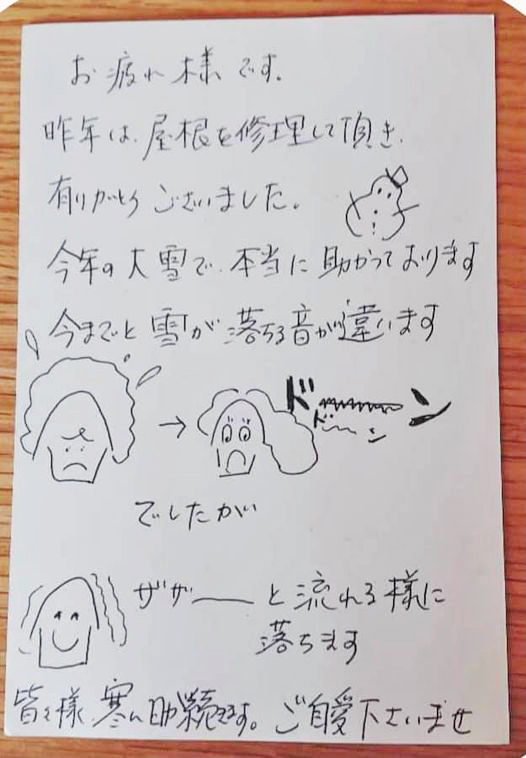 お疲れ様です。
昨年は、屋根を修理して頂き、
有りがとうございました。
今年の大雪で、本当に助かっております
今までと雪が落ちる音が違います
→ ドーーーン
ドーーン
でしたが
ザザーーと流れる様に
落ちます
皆々様、寒い 続きます。ご自愛下さいませ